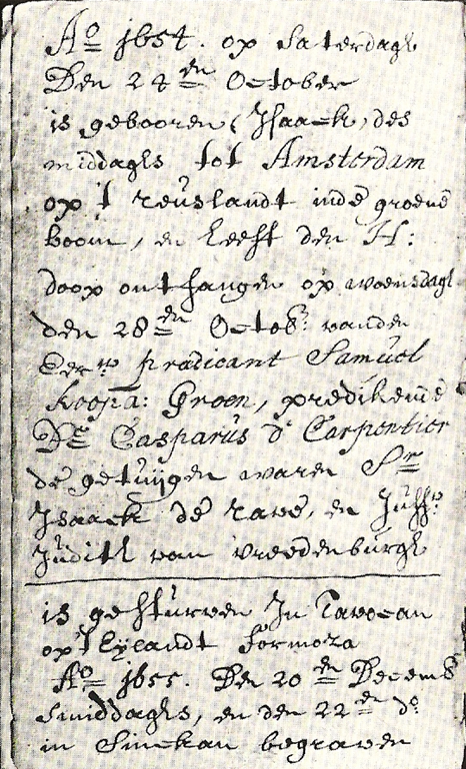 Aº 1654. op Saterdagh
Den 24en October
is gebooren (Isaack, des
middaghs tot Amsterdam
op 't reuslandt inde groene
boom, en heeft den H:
doop onthfangen op woensdagh
den 28en Octob: vanden
Eerw predicant Samuel
Koopa: Groen, predikende
Ds Casparus d' Carpentier
de getuijgen waren Sr
Isaack de rave, en Juffr
Judith van vreedenburgh
is gesturven In Tavocan
op't Eylandt formoza
Aº 1655. Den 20en Decemb
smiddaghs, en den 22en do
in Sinckan begraven